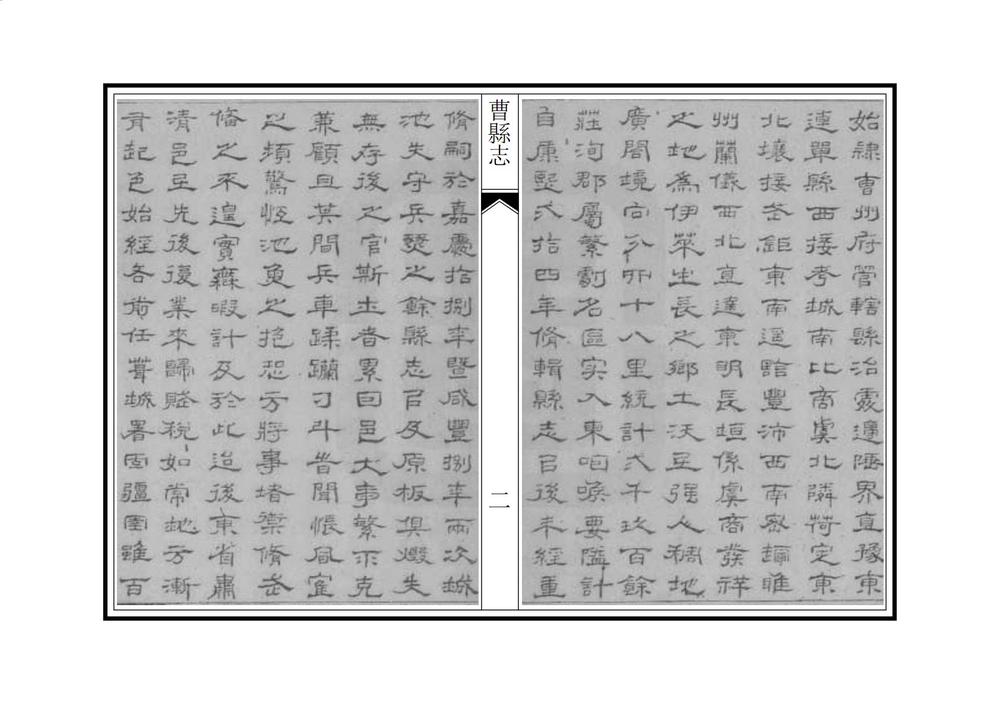 曹縣志
二
始隷曹州府管轄縣治處邊陲界直豫東
連單縣西接考城南比商虞北隣荷定東
北壤接武鉅東南遥豐沛西南密邇睢
州蘭儀西北直達東明長垣係虞商發祥
之地為伊萊生長之鄉土沃民强人稠地
廣闔境向分卌十八里統計弍千玖百餘
莊洵郡屬繁劇名區实入東咽喉要隘計
自康熙弍拾四年脩輯縣志㠯後未經重
脩嗣於嘉慶拾捌年暨咸豐捌年兩次城
池失守兵燹之餘縣志㠯及原板俱燬失
無存後之官斯土者累因邑大事繁不克
兼顧且其間兵車蹂躪刁斗皆聞悵風寉
之頻驚恆池魚之抱恐方將事堵禦脩武
備之不遑實無暇計及於此迨後東省肅
清邑民先後復業來歸賦税如常地方漸
有起色始經各前任葺城署固疆圉雖百